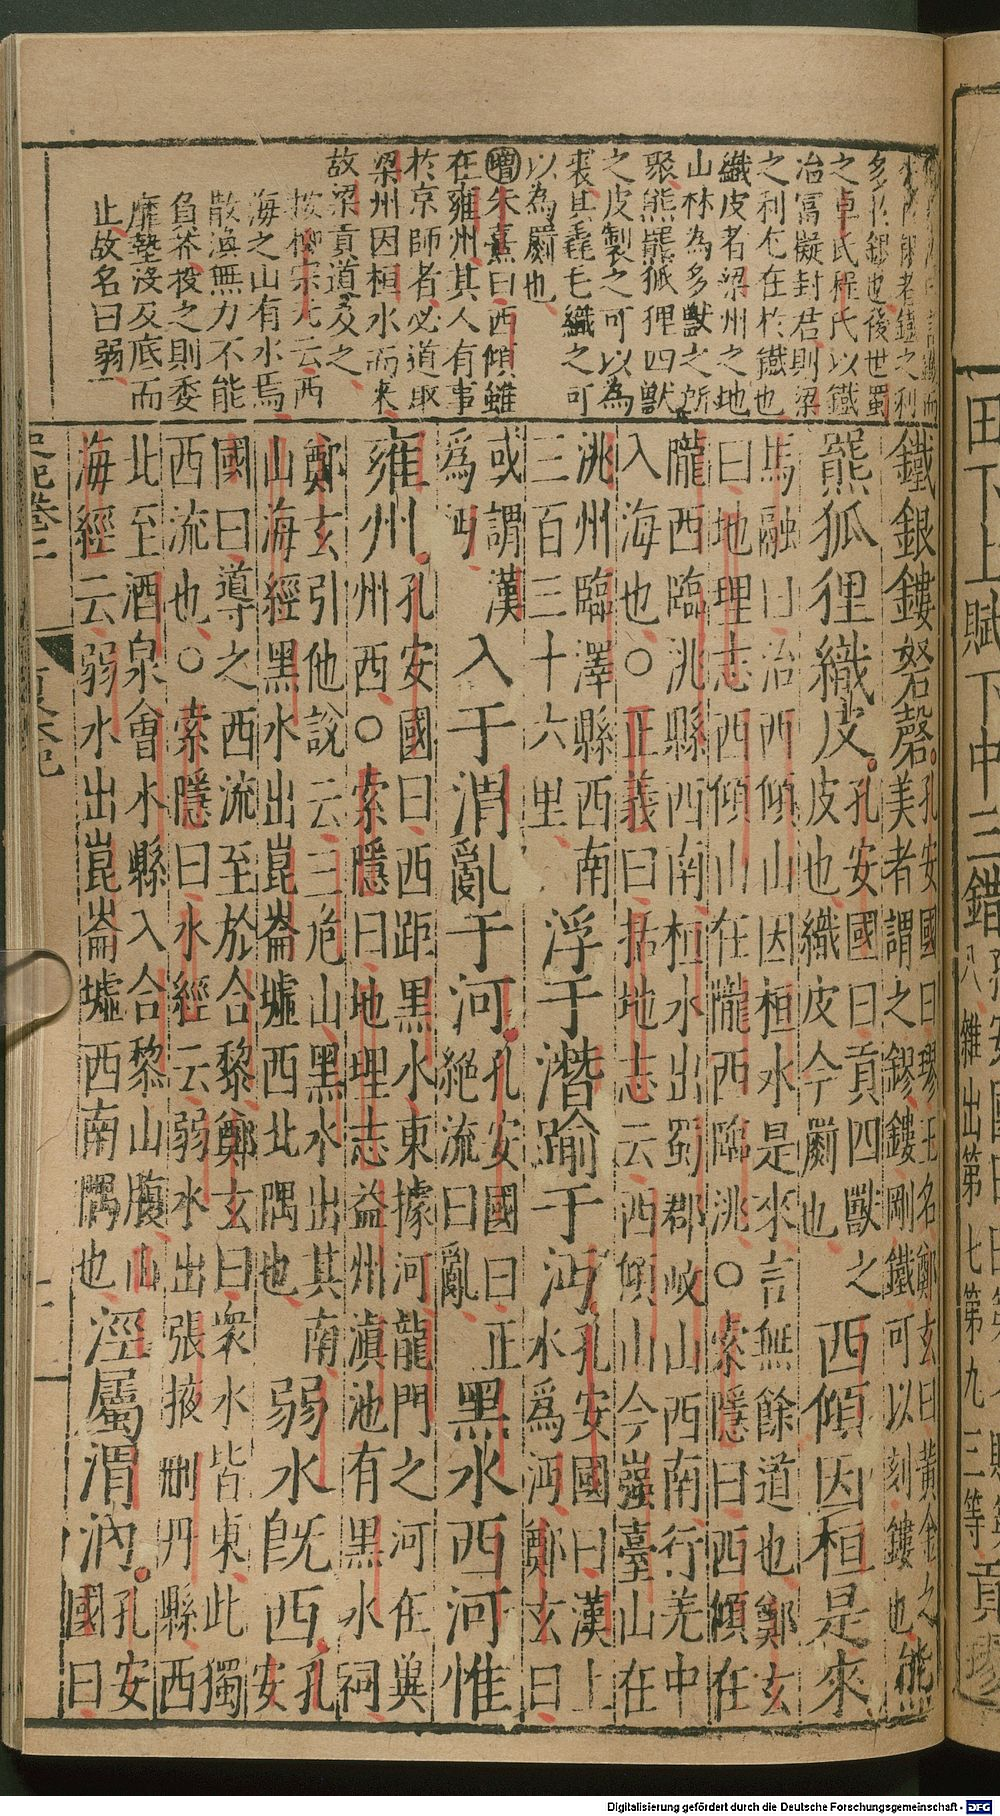 多於銀也後世蜀
之卓氏程氏以鐵
冶富擬封君則梁
之利尤在於鐵也
織皮者梁州之地
山林為多獸之所
聚熊羆狐狸四獸
之皮製之可以為
裘其毳毛織之可
以為罽也
增朱熹曰西傾雖
在雍州其人有事
於京師者必道取
梁州因桓水而來
故梁貢道及之
按柳宗元云西
海之山有水焉
散渙無力不能
負芥投之則委
靡墊沒及底而
止故名曰弱
鐵銀鏤砮磬孔安國曰璆玉名鄭玄曰黃金之
美者謂之鏐鏤剛鐵可以刻鏤也熊
熊狐狸織皮孔安國曰貢四獸之
皮也織皮今罽也西傾因桓是來
馬融曰治西傾山因桓水是來言無餘道也鄭玄
曰地理志西傾山在隴西臨洮○索隱曰西傾在
隴西臨洮縣西南桓水出蜀郡岐山西南行羌中
入海也○正義曰括地志云西傾山今嵹臺山在
洮州臨澤縣西南
三百三十六里浮于潛踰于沔孔安國曰漢上
水爲沔鄭玄曰
或謂漢
爲沔入于渭亂于河孔安國曰正
絕流曰亂黑水西河惟
雍州孔安國曰西距黑水東據河龍門之河在冀
州西○索隱曰地理志益州滇池有黑水祠
鄭玄引他說云三危山黑水出其南
山海經黑水出崑崙墟西北隅也弱水既西孔
安
國曰導之西流至於合黎鄭玄曰衆水皆東此獨
西流也○索隱曰水經云弱水出張掖刪丹縣西
北至酒泉會水縣入合黎山腹山
海經云弱水出崑崙墟西南隅也涇屬渭汭孔安
國曰
史記卷二
夏本紀
十一
田下上賦下中三錯
八雜出第七第九三等貢
Digitalisierung gefördert durch die Deutsche Forschungsgemeinschaft - DFG